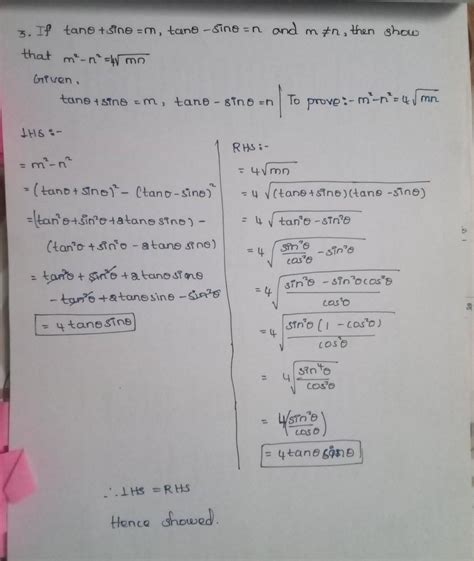 3. If tanθ+sinθ=m, tanθ-sinθ=n and m≠n, then show
that m²-n²=4√mn
Given,
tanθ+sinθ=m, tanθ-sinθ=n | To prove:- m²-n²=4√mn
LHS:-
= m²-n²
= (tanθ+sinθ)² - (tanθ-sinθ)²
= (tan²θ+sin²θ+2tanθsinθ) -
(tan²θ+sin²θ-2tanθsinθ)
= tan²θ + sin²θ +2tanθsinθ
- tan²θ +2tanθsinθ - sin²θ
= 4tanθsinθ
RHS:-
= 4√mn
= 4√(tanθ+sinθ)(tanθ-sinθ)
= 4√tan²θ-sin²θ
= 4√sin²θ/cos²θ - sin²θ
= 4√sin²θ - sin²θcos²θ/cos²θ
= 4√sin²θ(1-cos²θ)/cos²θ
= 4√sin⁴θ/cos²θ
= 4(sin²θ/cosθ)
= 4tanθ sinθ
∴ LHS = RHS
Hence showed.